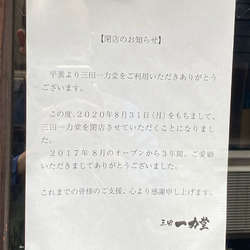 【閉店のお知らせ】
平素より三田一力堂をご利用いただきありがとう
ございます。
この度、2020年8月31日(月)をもちまして、
三田一力堂を閉店させていただくことになりまし
た。
2017年8月のオープンから3年間、ご愛顧
いただきましてありがとうございました。
これまでの皆様のご支援、心より感謝申し上げます。
三田 一力堂